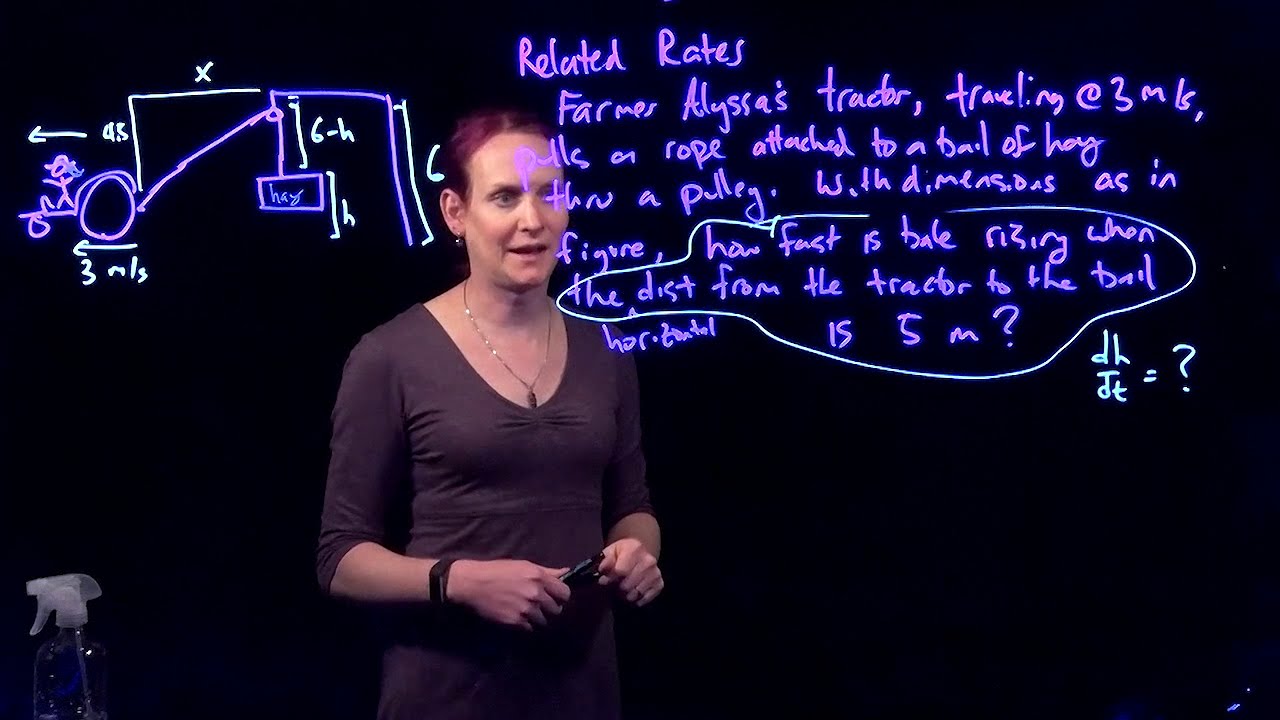 Related Rates
Farmer Alyssa's tractor, traveling @ 3 m/s,
pulls a rope attached to a bail of hay
thru a pulley. With dimensions as in
figure, how fast is bale rising when
the dist from the tractor to the bail
horizontal
is 5 m?
dh/dt = ?
x
4.5
6-h
6
hay
h
3 m/s